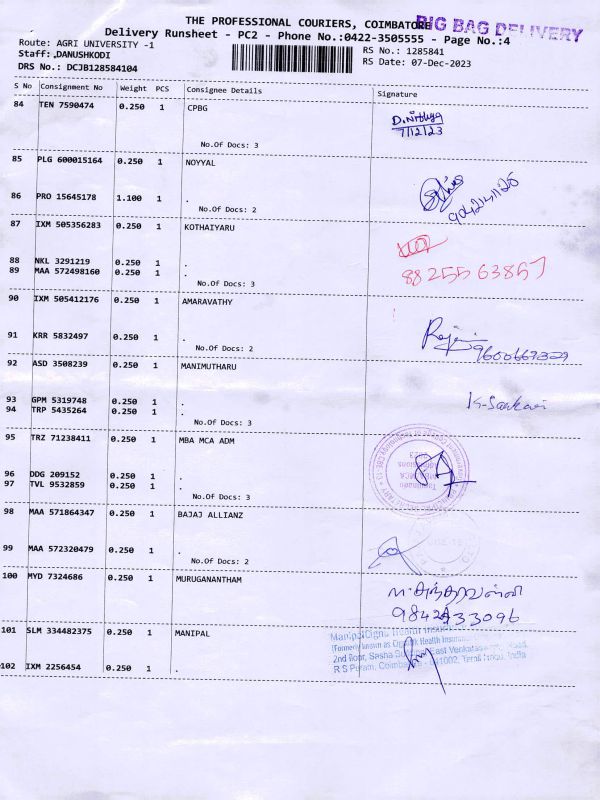 THE PROFESSIONAL COURIERS, COIMBATORE
BIG BAG DELIVERY
Delivery Runsheet - PC2 - Phone No.:0422-3505555 - Page No.:4
Route: AGRI UNIVERSITY -1
RS No.: 1285841
Staff:,DANUSHKODI
RS Date: 07-Dec-2023
DRS No.: DCJB128584104
S No Consignment No Weight PCS Consignee Details Signature
84 TEN 7590474 0.250 1 CPBG
D.Nithya
7/12/23
No.Of Docs: 3
85 PLG 600015164 0.250 1 NOYYAL
86 PRO 15645178 1.100 1 .
No.Of Docs: 2
87 IXM 505356283 0.250 1 KOTHAIYARU
88 NKL 3291219 0.250 1 .
89 MAA 572498160 0.250 1 .
8825563857
No.Of Docs: 3
90 IXM 505412176 0.250 1 AMARAVATHY
91 KRR 5832497 0.250 1 .
No.Of Docs: 2
92 ASD 3508239 0.250 1 MANIMUTHARU
93 GPM 5319748 0.250 1 .
94 TRP 5435264 0.250 1 .
No.Of Docs: 3
95 TRZ 71238411 0.250 1 MBA MCA ADM
96 DDG 209152 0.250 1 .
97 TVL 9532859 0.250 1 .
No.Of Docs: 3
98 MAA 571864347 0.250 1 BAJAJ ALLIANZ
99 MAA 572320479 0.250 1 .
No.Of Docs: 2
100 MYD 7324686 0.250 1 MURUGANANTHAM
9842433096
101 SLM 334482375 0.250 1 MANIPAL
102 IXM 2256454 0.250 1 .
2nd floor, Sasha
East Venkatasa
Road,
R S Puram, Coimba
641002, Tamil Nadu, India